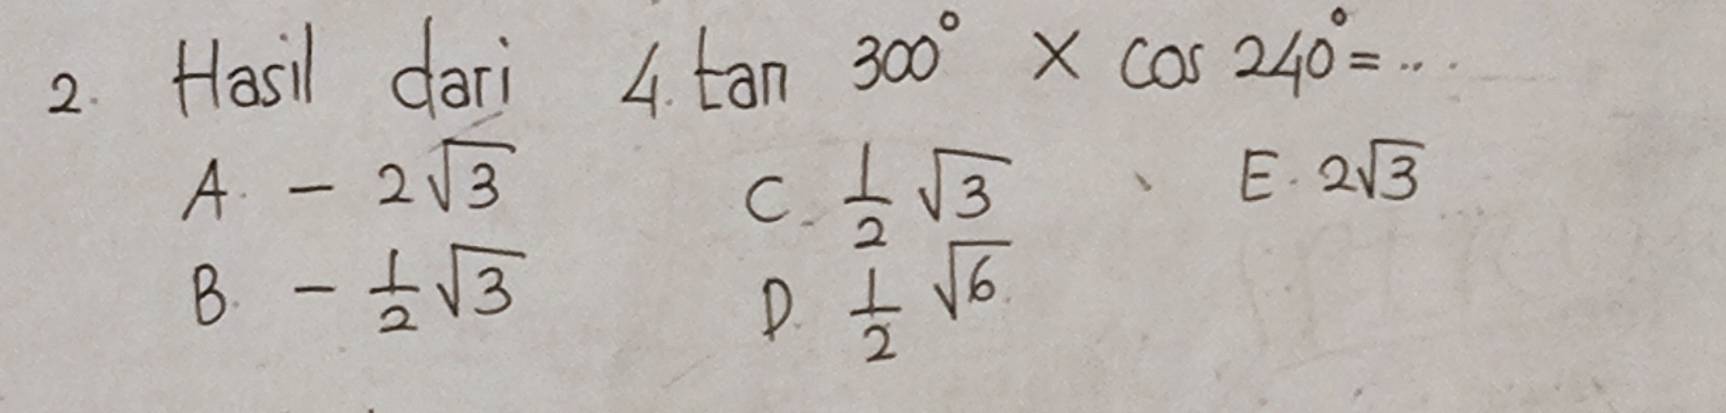 2. Hasil dari 4. tan 300° × cos 240° = ...
A. - 2√3 C. 1/2 √3 E. 2√3
B. - 1/2 √3 D. 1/2 √6